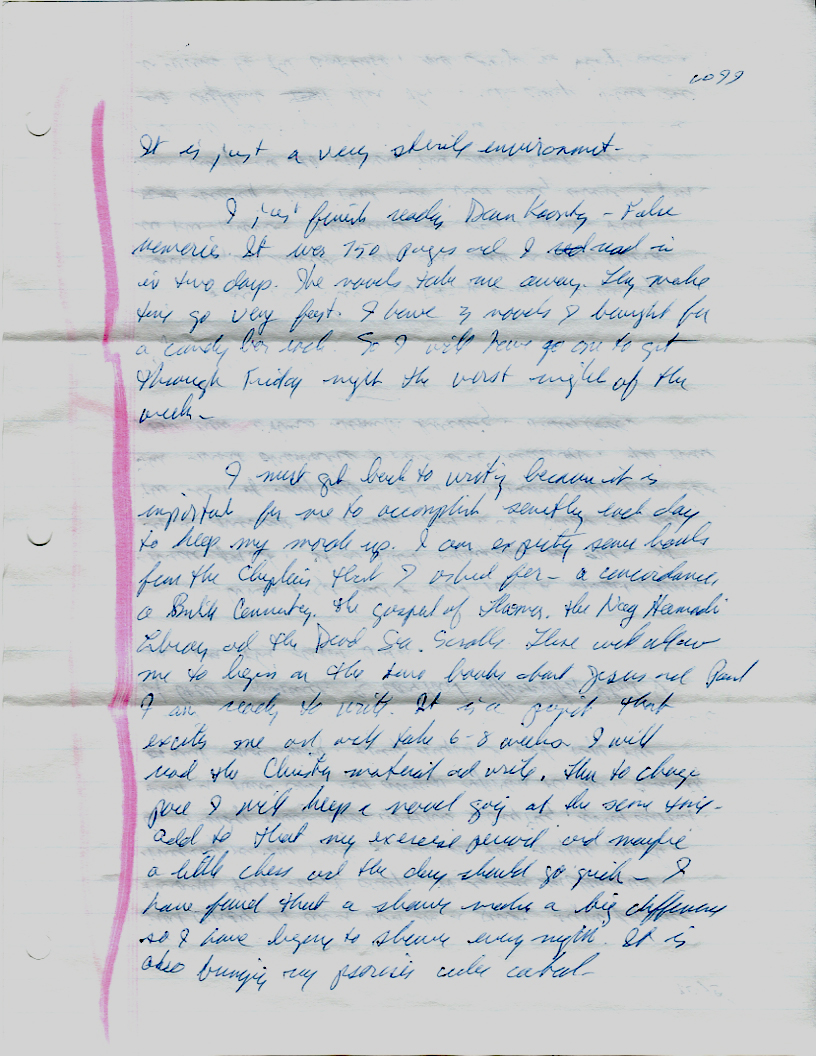 0099
It is just a very sterile environmet.
I jus' finish readig Dean Koontz - False
memories. It was 750 pages ad I read in
in two days. The novels take me away. They make
time go very fast. I have 3 novels I bought for
a candy bar each. So I will have go one to get
through Friday night the worst night of the
week -
I must get back to writing because it is
important for me to accomplish somethg each day
to keep my morale up. I am expectg some books
from the Chaplain that I asked for - a concordance,
a Bible Commentary. the gospel of Thomas. the Nag Hamadi
Library ad the Dead Sea Scrolls These will allow
me to begin on the two books about Jesus ad Paul
I am ready to write. It is a project that
excites me ad will take 6-8 weeks. I will
read the Christian material ad write. then to change
pace I will keep a novel going at the same time -
add to that my exercise period ad maybe
a little chess ad the day should go quick - I
have found that a shower makes a big difference
so I have begun to shower every night. It is
also bringing my psoriasis under control -